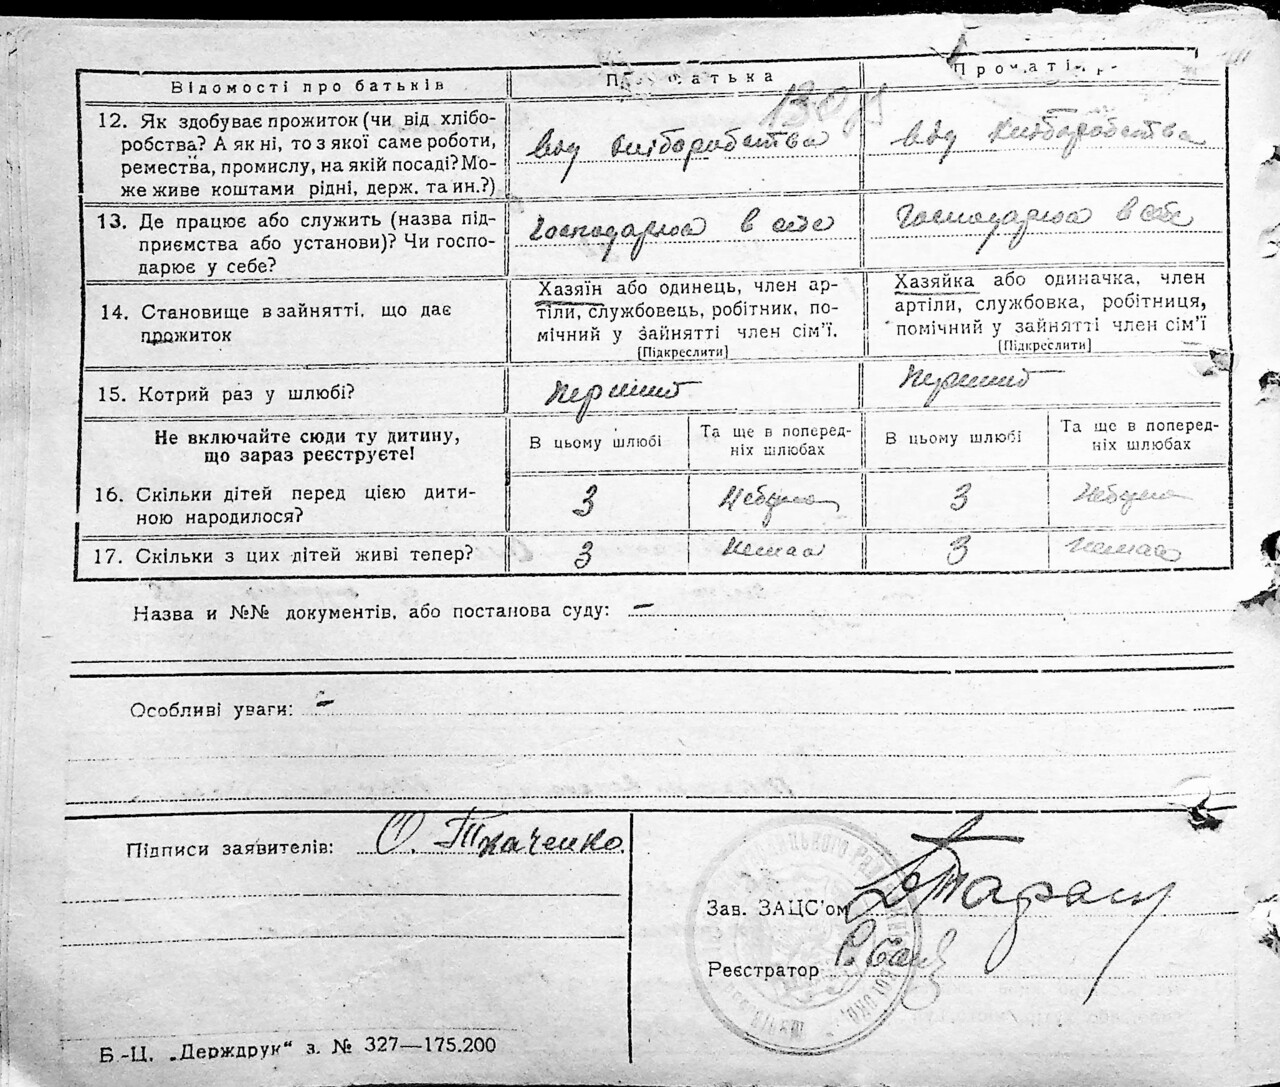 Відомості про батьків
Про батька
Про матір
12. Як здобуває прожиток (чи від хлібо-
робства? А як ні, то з якої саме роботи,
ремества, промислу, на якій посаді? Мо-
же живе коштами рідні, держ. та ин.?)
від хліборобства
від хліборобства
13. Де працює або служить (назва під-
приємства або установи)? Чи госпо-
дарює у себе?
Господарює в себе
Господарює в себе
14. Становище в зайнятті, що дає
прожиток
Хазяїн або одинець, член ар-
тіли, службовець, робітник, по-
мічний у зайнятті член сім'ї.
[Підкреслити]
Хазяйка або одиначка, член
артіли, службовка, робітниця,
помічний у зайнятті член сім'ї
[Підкреслити]
15. Котрий раз у шлюбі?
Перший
Перший
Не включайте сюди ту дитину,
що зараз реєструєте!
В цьому шлюбі
Та ще в поперед-
ніх шлюбах
В цьому шлюбі
Та ще в поперед-
ніх шлюбах
16. Скільки дітей перед цією дити-
ною народилося?
3
Небуло
3
Небуло
17. Скільки з цих дітей живі тепер?
3
Немає
3
Немає
Назва и №№ документів, або постанова суду: —
Особливі уваги: —
Підписи заявителів: О. Ткаченко.
Зав. ЗАЦС'ом
Реєстратор
Б-Ц. „Держдрук“ з. № 327—175.200